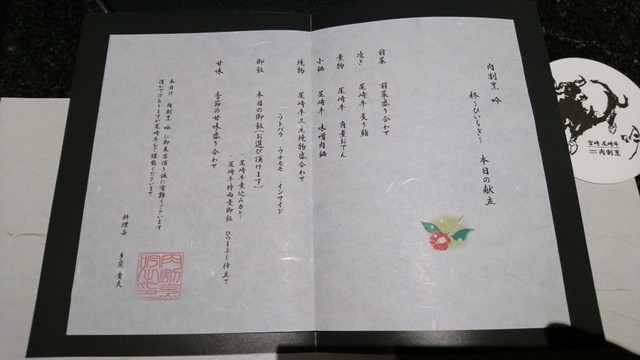 肉割烹 吟
柊～ひいらぎ～ 本日の献立
前菜 前菜盛り合わせ
凌ぎ 尾崎牛 炙り鮨
煮物 尾崎牛 角煮おでん
小鍋 尾崎牛 味噌肉鍋
焼物 尾崎牛三土焼物盛合わせ
・ソトバラ ・ウチモモ ・インサイド
御飯 本日の御飯(お選び頂けます)
・尾崎牛煮込みカレー
・尾崎牛時雨煮御飯 ひつまぶし仕立て
甘味 季節の甘味盛り合わせ
本日は 肉割烹 吟 に御来店頂き誠に有難うございます
僅かではありますが尾崎牛をご堪能くださいませ
料理長
吟
宮崎 尾崎牛
肉割烹